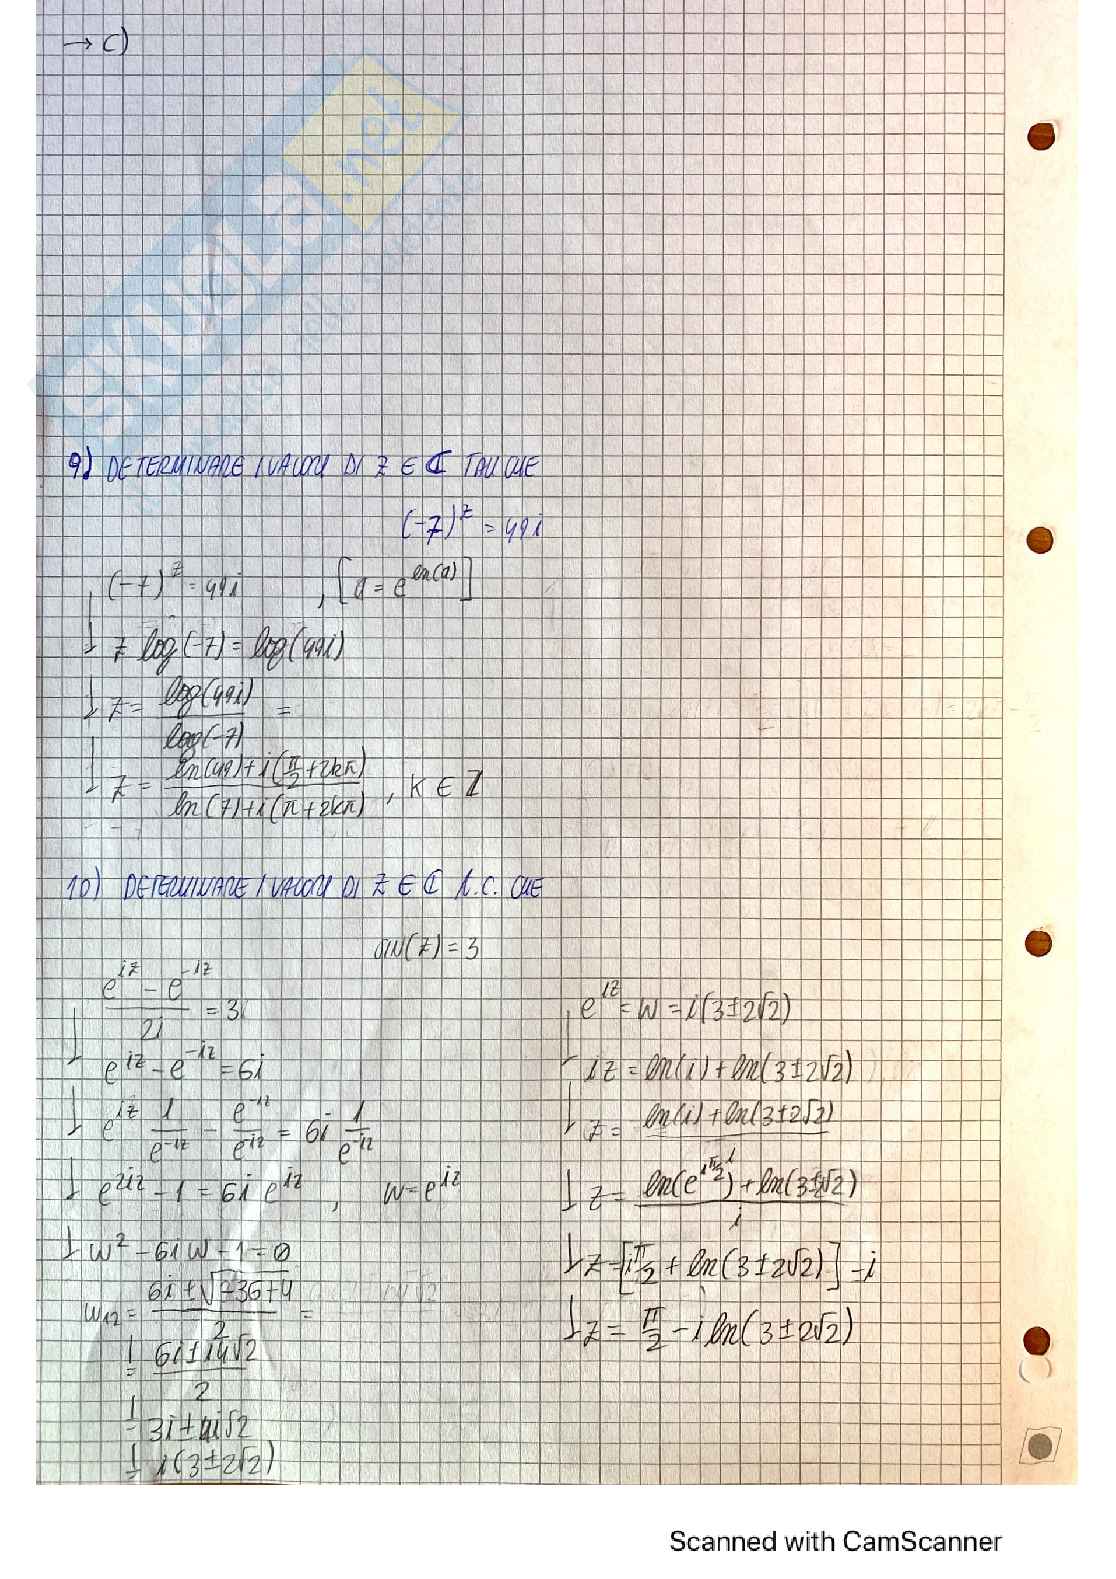 → C)
SKUOLA.net
9) DETERMINARE I VALORI DI Z ∈ ℂ TALI CHE
(-7)^z = 49i
(-7)^z = 49i , [a = e^{ln(a)}]
↓ z log(-7) = log(49i)
↓ z = log(49i) / log(-7) =
↓ z = (ln(49) + i(π/2 + 2kπ)) / (ln(7) + i(π + 2kπ)) , K ∈ ℤ
10) DETERMINARE I VALORI DI Z ∈ ℂ t.c. CHE
sin(z) = 3
(e^{iz} - e^{-iz}) / 2i = 3
↓ e^{iz} - e^{-iz} = 6i
↓ e^{iz} 1/e^{-iz} - e^{-iz}/e^{-iz} = 6i 1/e^{-iz}
↓ e^{2iz} - 1 = 6i e^{iz} , w = e^{iz}
↓ w² - 6iw - 1 = 0
w_{12} = (6i ± √(-36+4)) / 2 =
= (6i ± i4√2) / 2
= 3i ± 2i√2
= i(3 ± 2√2)
e^{iz} = w = i(3 ± 2√2)
↓ iz = ln(i) + ln(3 ± 2√2)
↓ z = (ln(i) + ln(3 ± 2√2)) / i
↓ z = (ln(e^{iπ/2}) + ln(3 ± 2√2)) / i
↓ z = [iπ/2 + ln(3 ± 2√2)] - i
↓ z = π/2 - i ln(3 ± 2√2)
Scanned with CamScanner